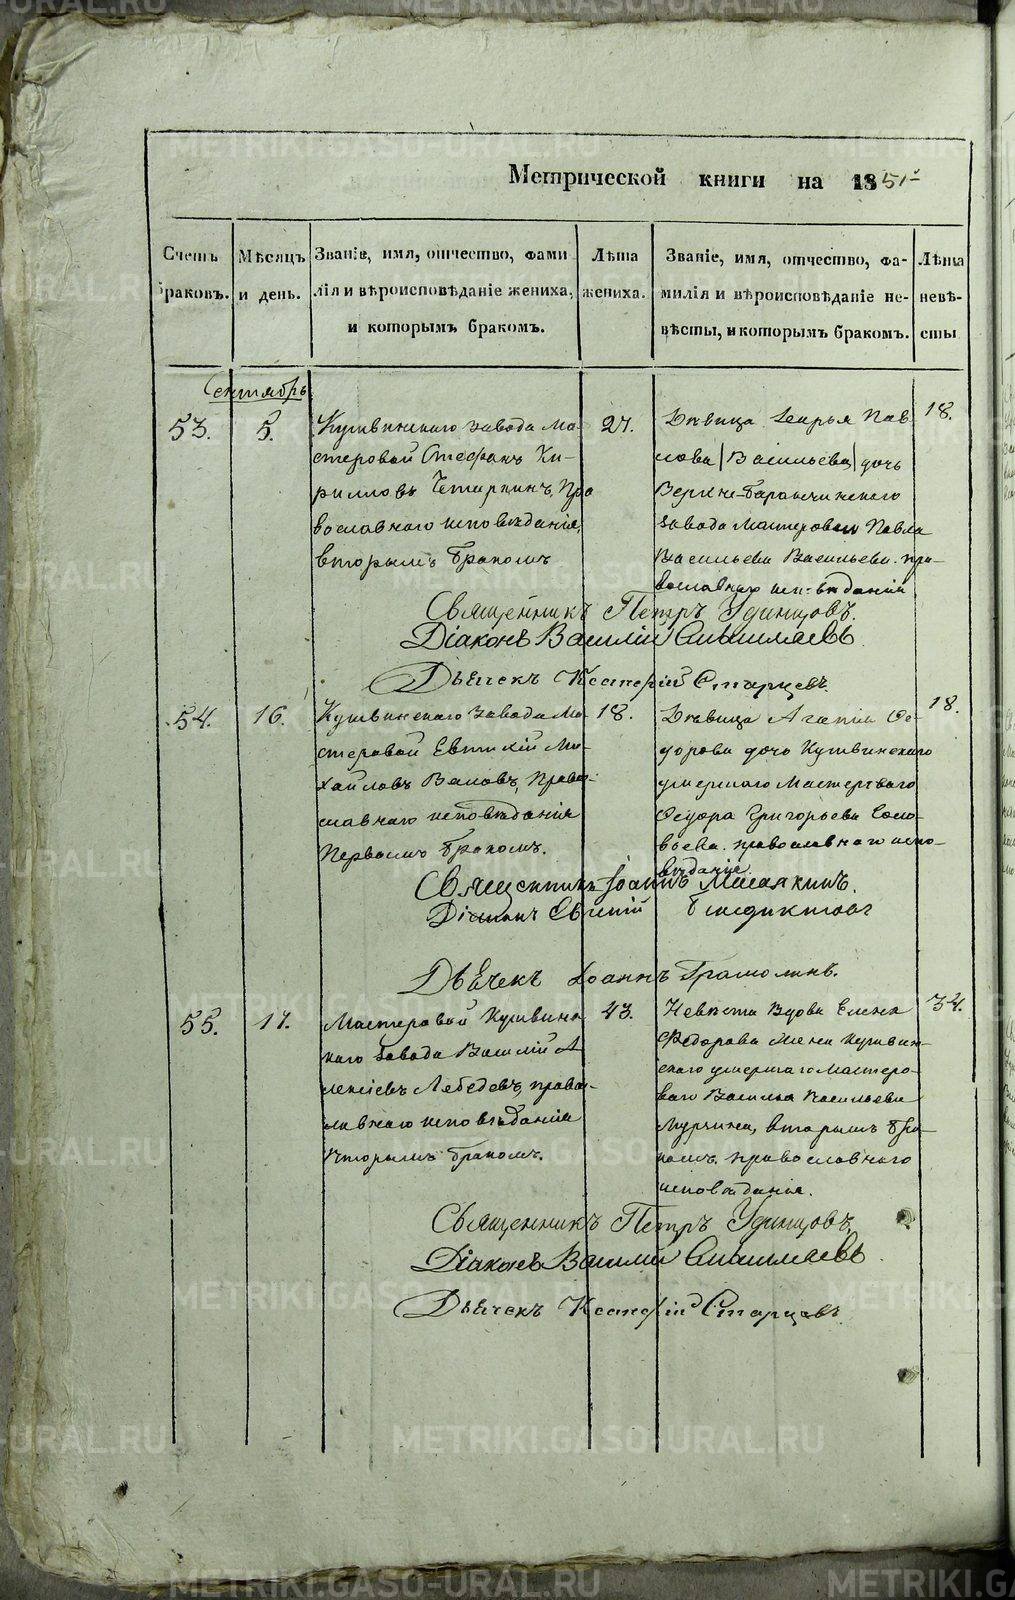 METRIKI.GASO-URAL.RU
Метрической книги на 1851й
Счетъ браковъ.
Мѣсяцъ и день.
Званіе, имя, отчество, фами
лія и вѣроисповѣданіе жениха,
и которымъ бракомъ.
Лѣта жениха.
Званіе, имя, отчество, фа-
милія и вѣроисповѣданіе не-
вѣсты, и которымъ бракомъ.
Лѣта невѣ-
сты
Сентябрь
53.
5.
Кушвинскаго завода Ма-
стеровой Стефанъ Ки-
рилловъ Четыркинъ, Пра
вославнаго исповѣданія,
вторымъ бракомъ
27.
Дѣвица Дарья Пав
лова (Васильева) дочь
Верхне-Баранчинскаго
завода Мастероваго Павла
Васильева Васильева. пра-
вославнаго исповѣданія
18.
Священникъ Петръ Удинцовъ.
Діаконъ Василій
Дьячекъ Старцевъ.
54.
16.
Кушвинскаго Завода Ма
стеровой Евтихій Ми-
хайловъ Валовъ, Право-
славнаго исповѣданія
Первымъ бракомъ.
18.
Дѣвица Агапія Ѳе-
дорова дочь Кушвинскаго
умершаго Мастероваго
Ѳедора Григорьева Соло-
вьева. православнаго испо-
вѣданіе.
18.
Священникъ Іоаннъ
Діаконъ Евгеній
Дьячекъ Іоаннъ Грамолинъ.
55.
17.
Мастеровой Кушвинс
каго Завода Василій А
лексіевъ Лебедевъ, право-
славнаго исповѣданія
Вторымъ бракомъ.
43.
Невѣста Вдова Елена
Ѳедорова Жена Кушвин-
скаго умершаго Мастеро-
ваго Василья Васильева
Мурзина, вторымъ бра-
комъ. православнаго
исповѣданія.
34.
Священникъ Петръ Удинцовъ,
Діаконъ Василій
Дьячекъ Старцевъ